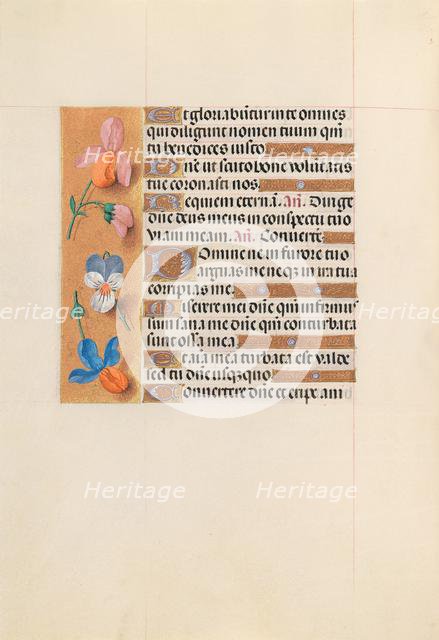 Et gloriabuntur in te omnes
qui diligunt nomen tuum qm̄
tu benedices iusto
Dn̄e ut scuto bone voluntatis
tue coronasti nos
Requiem eternā. Añ. Dirige
dn̄e deus meus in conspectu tuo
viam meam. Añ. Conuerte.
Domine ne in furore tuo
arguas me neq3 in ira tua
corripias me
Miserere mei dn̄e qm̄ infirmus
sum sana me dn̄e qm̄ conturbata
sunt ossa mea
Et aīa mea turbata est valde
sed tu dn̄e usq3quo
Conuertere dn̄e et eripe am̄
Heritage
Heritage
Heritage
Heritage
Heritage
Heritage